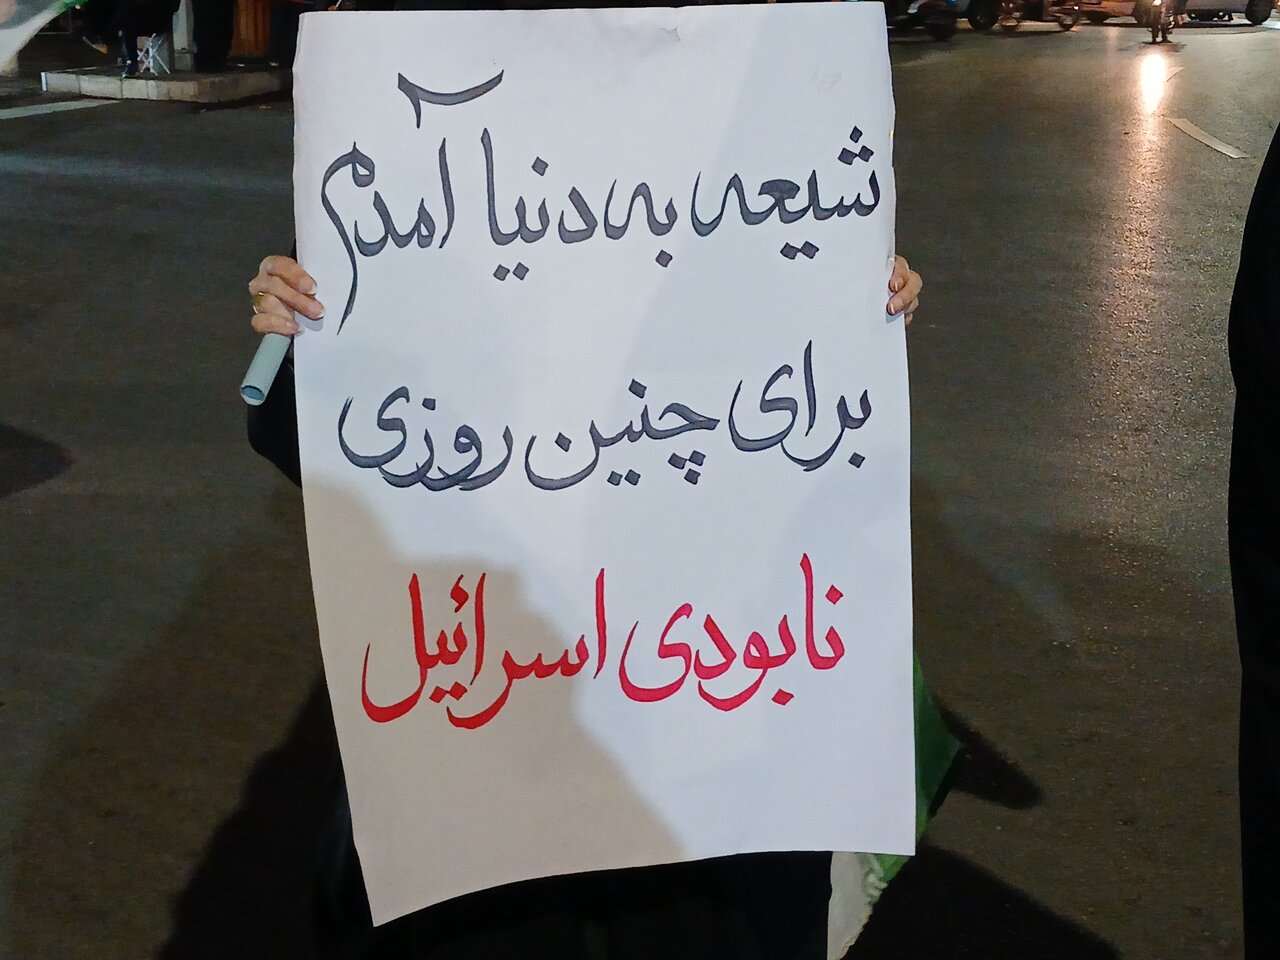 شیعه به دنیا آمدم
برای چنین روزی
نابودی اسرائیل